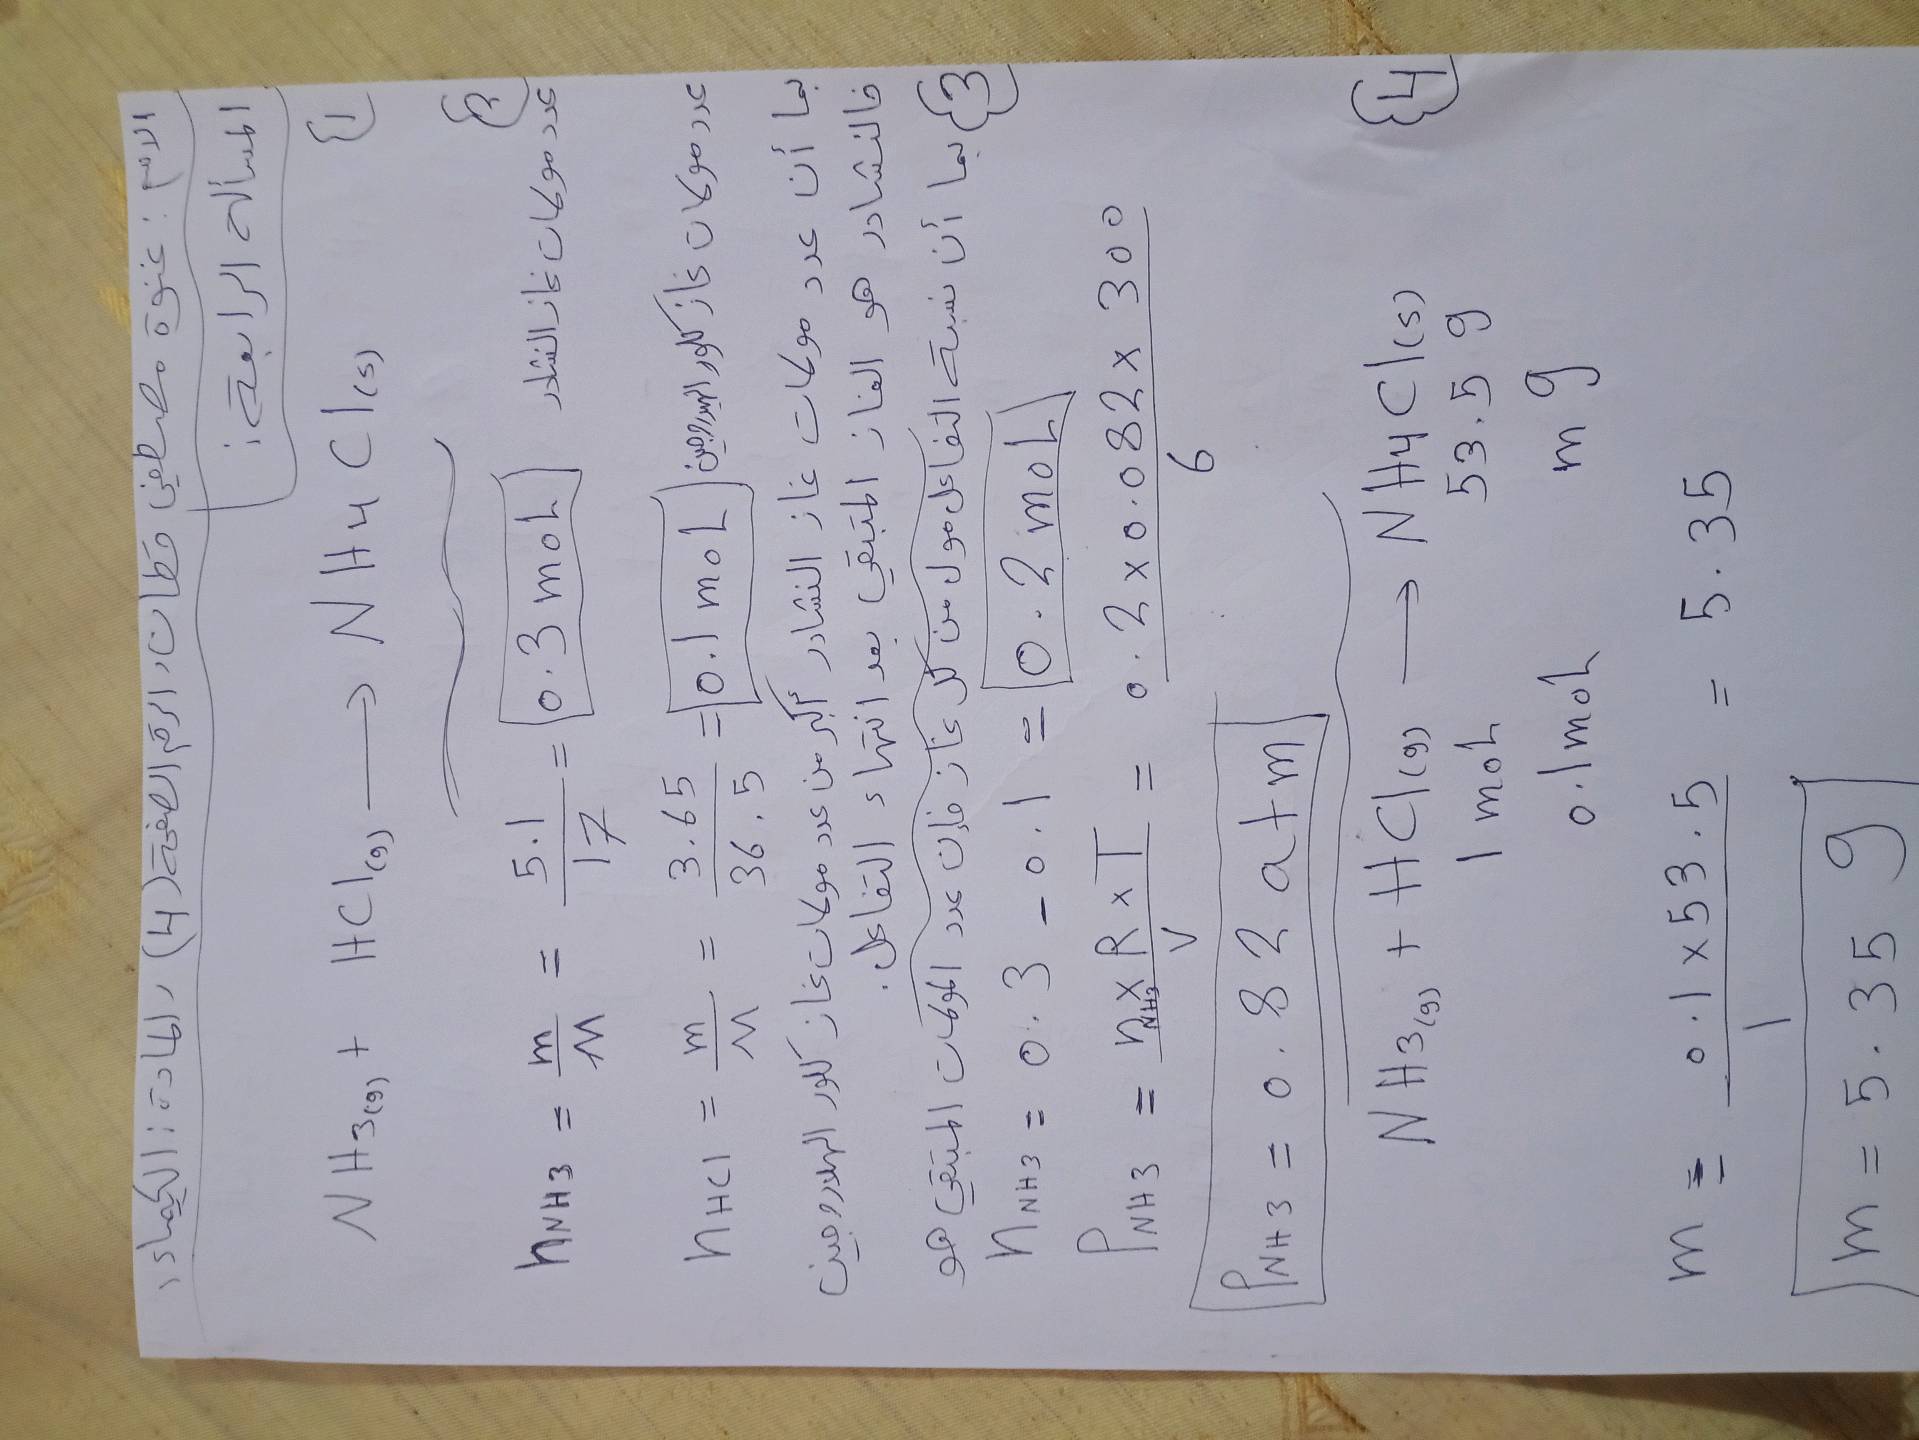 الاسم : غنوة مصطفى قطان، الرقم الصفحة (4) ، المادة : الكيمياء.
المسألة الرابعة :
{1}
NH3(g) + HCl(g) → NH4Cl(s)
{2}
nNH3 = m/M = 5.1/17 = 0.3 moL عدد مولات غاز النشادر
nHCl = m/M = 3.65/36.5 = 0.1 moL عدد مولات غاز كلور الهيدروجين
بما أن عدد مولات غاز النشادر أكبر من عدد مولات غاز كلور الهيدروجين
فالنشادر هو الغاز المتبقي بعد انتهاء التفاعل.
{3} بما أن نسبة التفاعل مول من كل غاز فإن عدد المولات المتبقي هو
nNH3 = 0.3 - 0.1 = 0.2 moL
PNH3 = nNH3 × R × T / V = 0.2 × 0.082 × 300 / 6
PNH3 = 0.82 atm
{4}
NH3(g) + HCl(g) → NH4Cl(s)
1 moL 53.5 g
0.1 moL m g
m = 0.1 × 53.5 / 1 = 5.35
m = 5.35 g